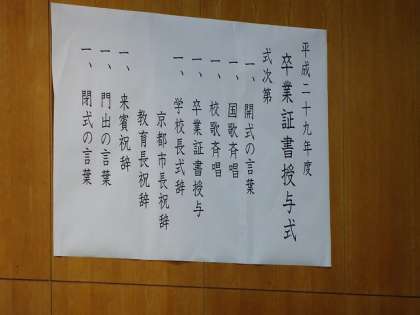 平成二十九年度
卒業証書授与式
式次第
一、開式の言葉
一、国歌斉唱
一、校歌斉唱
一、卒業証書授与
一、学校長式辞
京都市長祝辞
教育長祝辞
一、来賓祝辞
一、門出の言葉
一、閉式の言葉